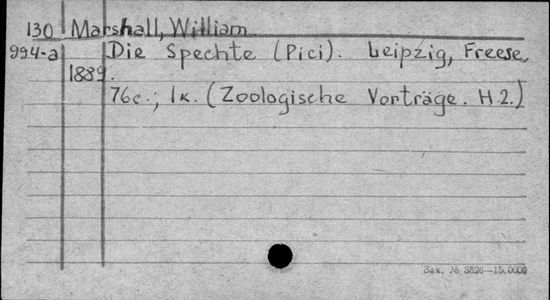 130 Marshall, William
994-a Die Spechte (Pici). Leipzig, Freese,
1889.
76c.; 1к. (Zoologische Vorträge. H.2.)
Зак. № 3826—15.000